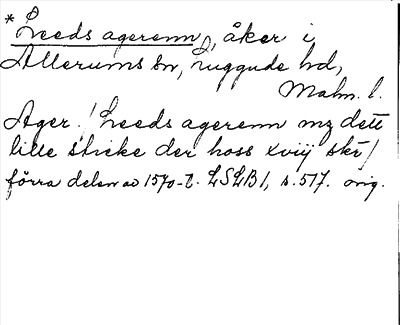 *Leeds agerenn, åker i
Allerums sn, Luggude hd,
Malm. l.
Ager. / Leeds agerenn mz dett
lille sticke der hoss xviij skr /
förra delen av 1570-t. LSLB 1, s. 517. orig.